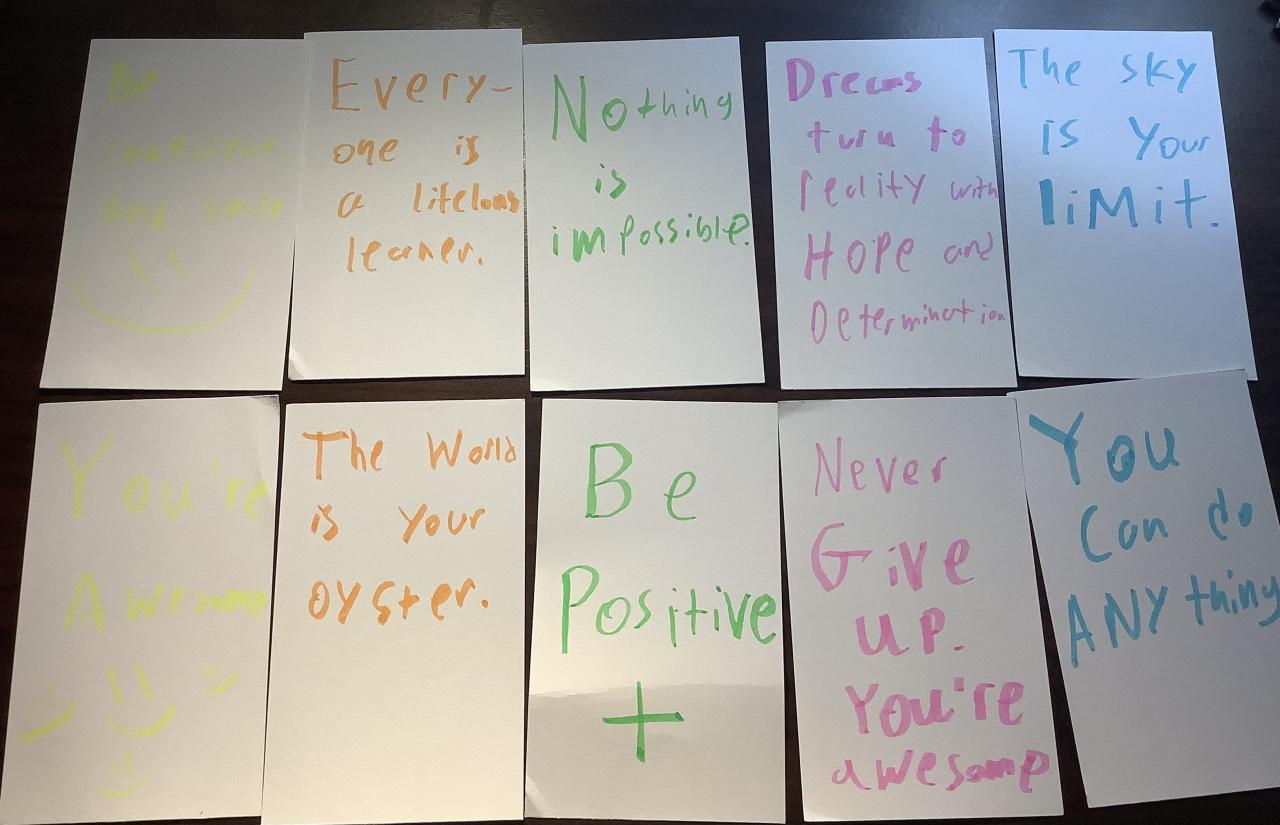 Be
confident,
and smile
Every-
one is
a lifelong
learner.
Nothing
is
impossible.
Dreams
turn to
reality with
HOPE and
Determination
The sky
is Your
liMit.
You're
Awesome
The World
is Your
oyster.
Be
Positive
+
Never
Give
up.
You're
awesome
You
Can do
ANYthing